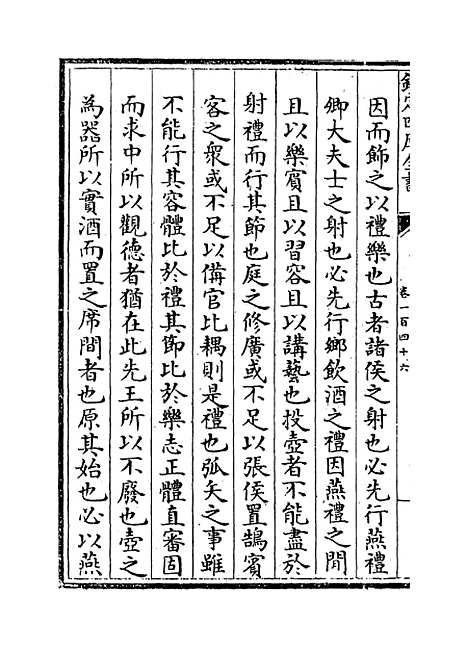 欽定四庫全書
卷一百四十六
因而飾之以禮樂也古者諸侯之射也必先行燕禮
卿大夫士之射也必先行鄉飲酒之禮因燕禮之間
且以樂賓且以習容且以講藝也投壺者不能盡於
射禮而行其節也庭之修廣或不足以張侯置鵠賓
客之衆或不足以備官比耦則是禮也弧矢之事雖
不能行其容體比於禮其節比於樂志正體直審固
而求中所以觀德者猶在此先王所以不廢也壺之
為器所以實酒而置之席間者也原其始也必以燕